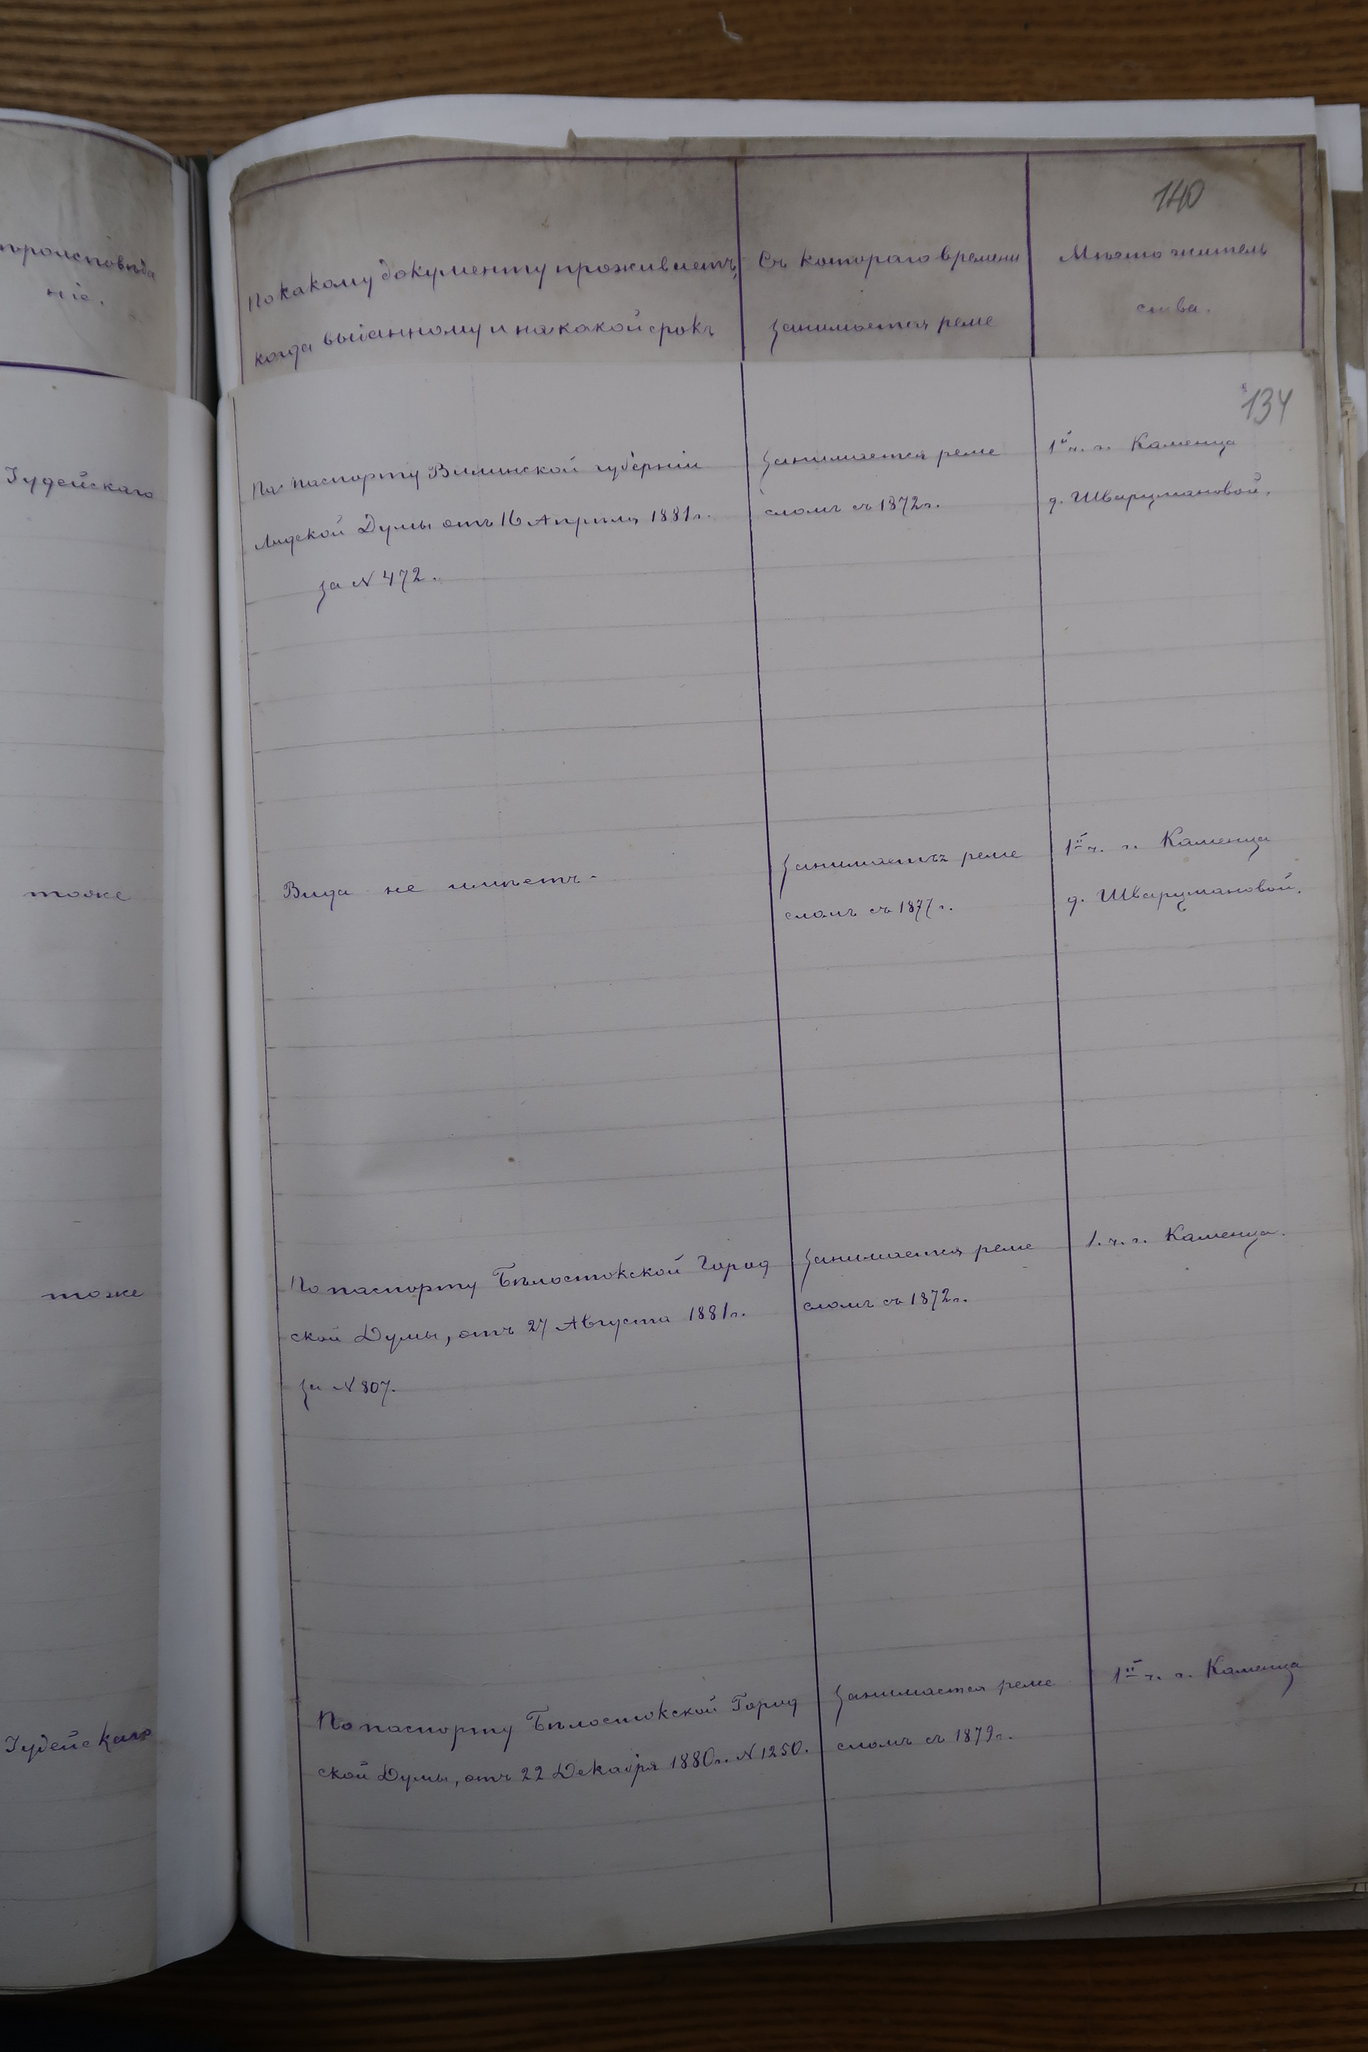 вѣроисповѣда
ніе.
140
По какому документу проживаетъ,
когда выданному и на какой срокъ
Съ котораго времени
занимается реме
Мѣсто житель
ства.
134
Іудейскаго
По паспорту Виленской губерніи
Лидской Думы отъ 16 Апрѣля 1881 г.
за № 472.
Занимается реме
сломъ съ 1872 г.
1й ч. г. Каменца
д. Шварцмановой.
тоже
Вида не имѣетъ.
Занимаетъ реме
сломъ съ 1877 г.
1й ч. г. Каменца
д. Шварцмановой.
тоже
По паспорту Бѣлостокской Город
ской Думы, отъ 27 Августа 1881 г.
за № 807.
Занимается реме
сломъ съ 1872 г.
1. ч. г. Каменца.
Іудейскаго
По паспорту Бѣлостокской Город
ской Думы, отъ 22 Декабря 1880 г. № 1250.
Занимается реме
сломъ съ 1879 г.
1й ч. г. Каменца